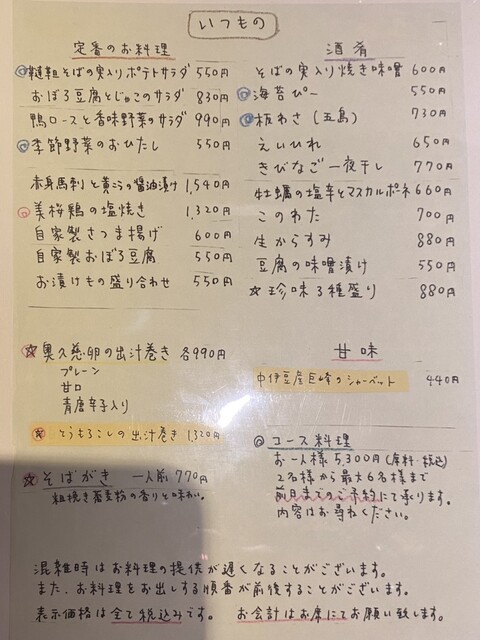 いつもの
定番のお料理
韃靼そばの実入りポテトサラダ 550円
おぼろ豆腐とじゃこのサラダ 830円
鴨ロースと香味野菜のサラダ 990円
季節野菜のおひたし 550円
赤身馬刺と黄こうの醤油漬け 1,540円
美桜鶏の塩焼き 1,320円
自家製さつま揚げ 600円
自家製おぼろ豆腐 550円
お漬けもの盛り合わせ 550円
☆奥久慈卵の出汁巻き 各990円
プレーン
甘口
青唐辛子入り
☆とうもろこしの出汁巻き 1,320円
☆そばがき 一人前 770円
粗挽き蕎麦粉の香りと味わい。
酒肴
そばの実入り焼き味噌 600円
海苔ぴー 550円
板わさ(五島) 730円
えいひれ 650円
きびなご一夜干し 770円
牡蠣の塩辛とマスカルポーネ 660円
このわた 700円
生からすみ 880円
豆腐の味噌漬け 550円
☆珍味3種盛り 880円
甘味
中伊豆産巨峰のシャーベット 440円
◎コース料理
お一人様 5,300円(席料・税込)
2名様から最大6名様まで
前日までのご予約にて承ります。
内容はお尋ねください。
混雑時はお料理の提供が遅くなることがございます。
また、お料理をお出しする順番が前後することがございます。
表示価格は全て税込みです。 お会計はお席にてお願い致します。